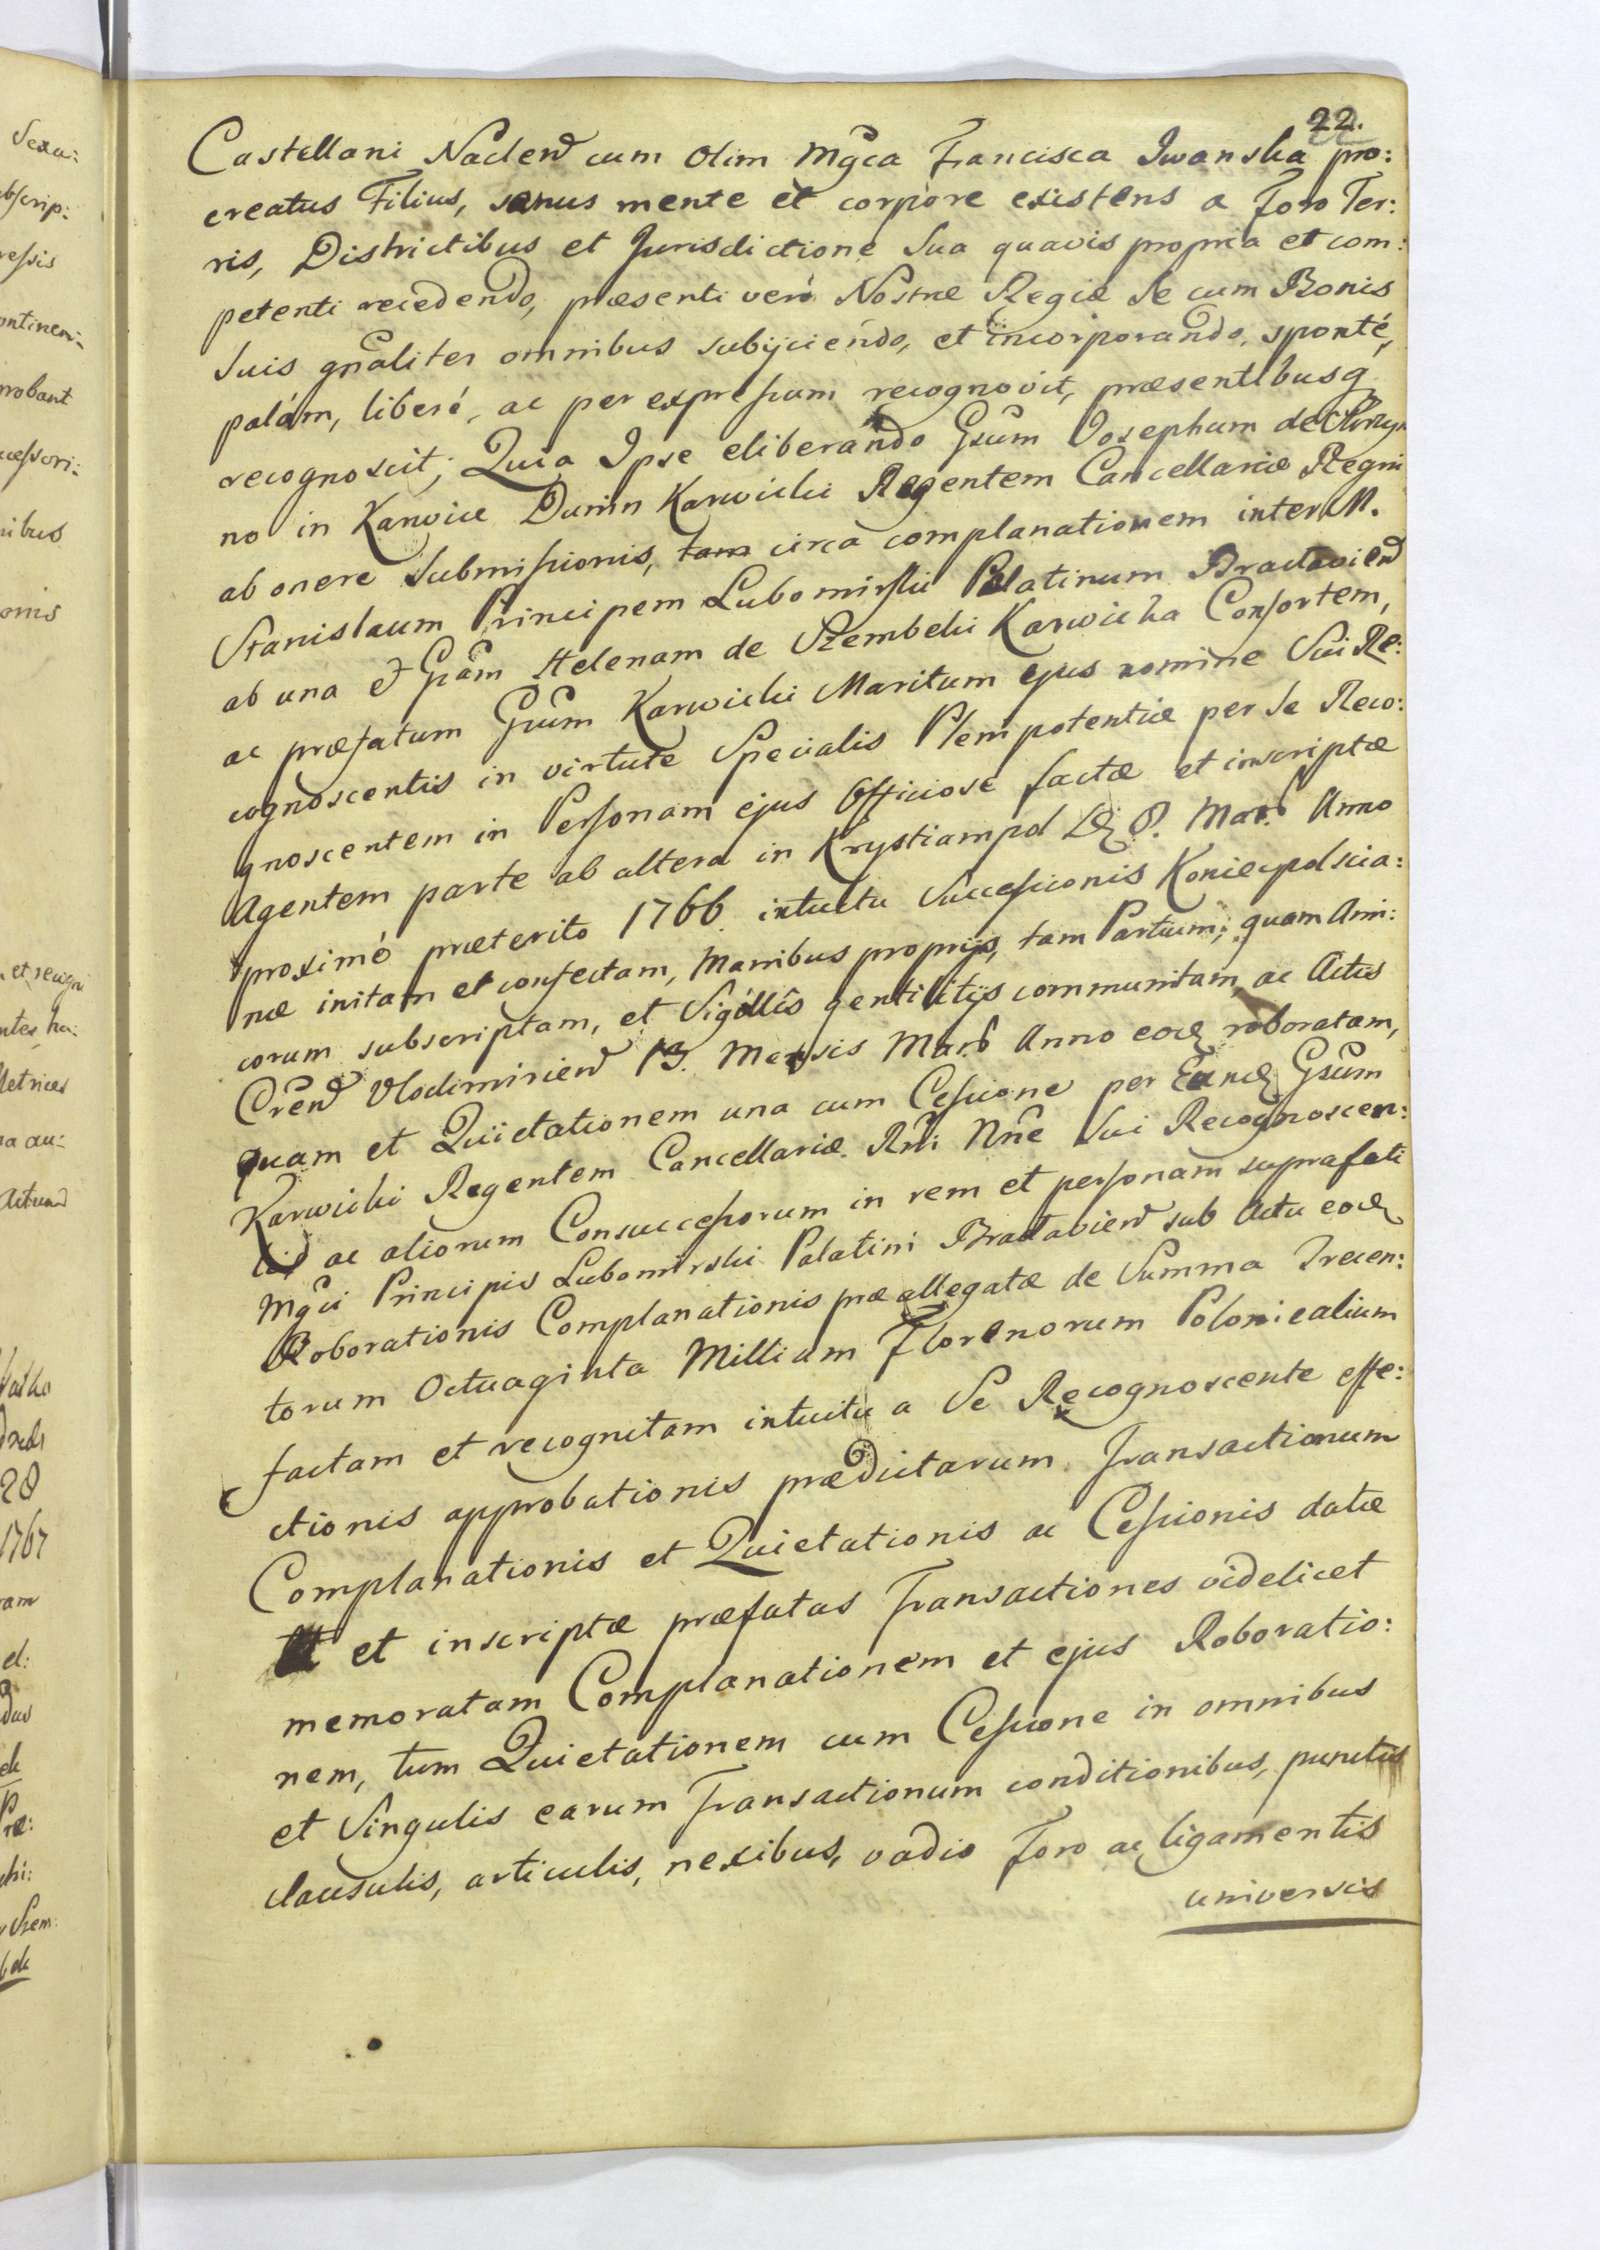 22.
Castellani Naclen̄ cum olim Mgca Francisca Iwanska pro:
creatus Filius, sanus mente et corpore existens a Foro Ter:
ris, Districtibus et Jurisdictione Sua quavis propria et com:
petenti recedendo, præsenti veró Nostræ Regiæ Se cum Bonis
Suis gnaliter omnibus subijciendo, et incorporando, sponté,
palám, liberé, ac per expressum recognovit, præsentibusq
recognoscit; Quia Ipse eliberando Gsum Josephum de
no in Karwice Dunin Karwicki Regentem Cancellariæ Regni
ab onere Submissionis, tam circa complanationem inter M.
Stanislaum Principem Lubomirski Palatinum Braclavien̄
ab una & Gsam Helenam de Szembeki Karwicka Consortem,
ac præfatum Gsum Karwicki Maritum ejus nomine Sui Re:
cognoscentis in virtute Specialis Plenipotentiæ per Se Reco:
gnoscentem in Personam ejus Officiose factæ et inscriptæ
Agentem parte ab altera in Krystiampol D 8. Mar. Anno
proximé præterito 1766 intuitu Successionis Koniecpolscia:
næ initam et confectam, Manibus proprijs, tam Partium; quam Ami:
corum subscriptam, et Sigillis gentilitijs communitam, ac Actis
Cren̄ Vlodimirien̄ 13. Mensis Mar. Anno eod roboratam,
quam et Quietationem una cum Cessione per Eund Gsum
Karwicki Regentem Cancellariæ. Rni Nne Sui Recognoscen:
tis ac aliorum Consuccessorum in rem et personam suprafati
Mgci Principis Lubomirski Palatini Braclavien̄ sub Actu eod
Roborationis Complanationis præallegatæ de Summa Trecen:
torum Octuaginta Millium Florenorum Polonicalium
factam et recognitam intuitu a Se Recognoscente effe:
ctionis approbationis prædictarum Transactionum
Complanationis et Quietationis ac Cessionis datæ
et inscriptæ præfatas Transactiones videlicet
memoratam Complanationem et ejus Roboratio:
nem, tum Quietationem cum Cessione in omnibus
et Singulis earum Transactionum conditionibus, punctis
clausulis, articulis, nexibus, vadio Foro ac ligamentis
universis